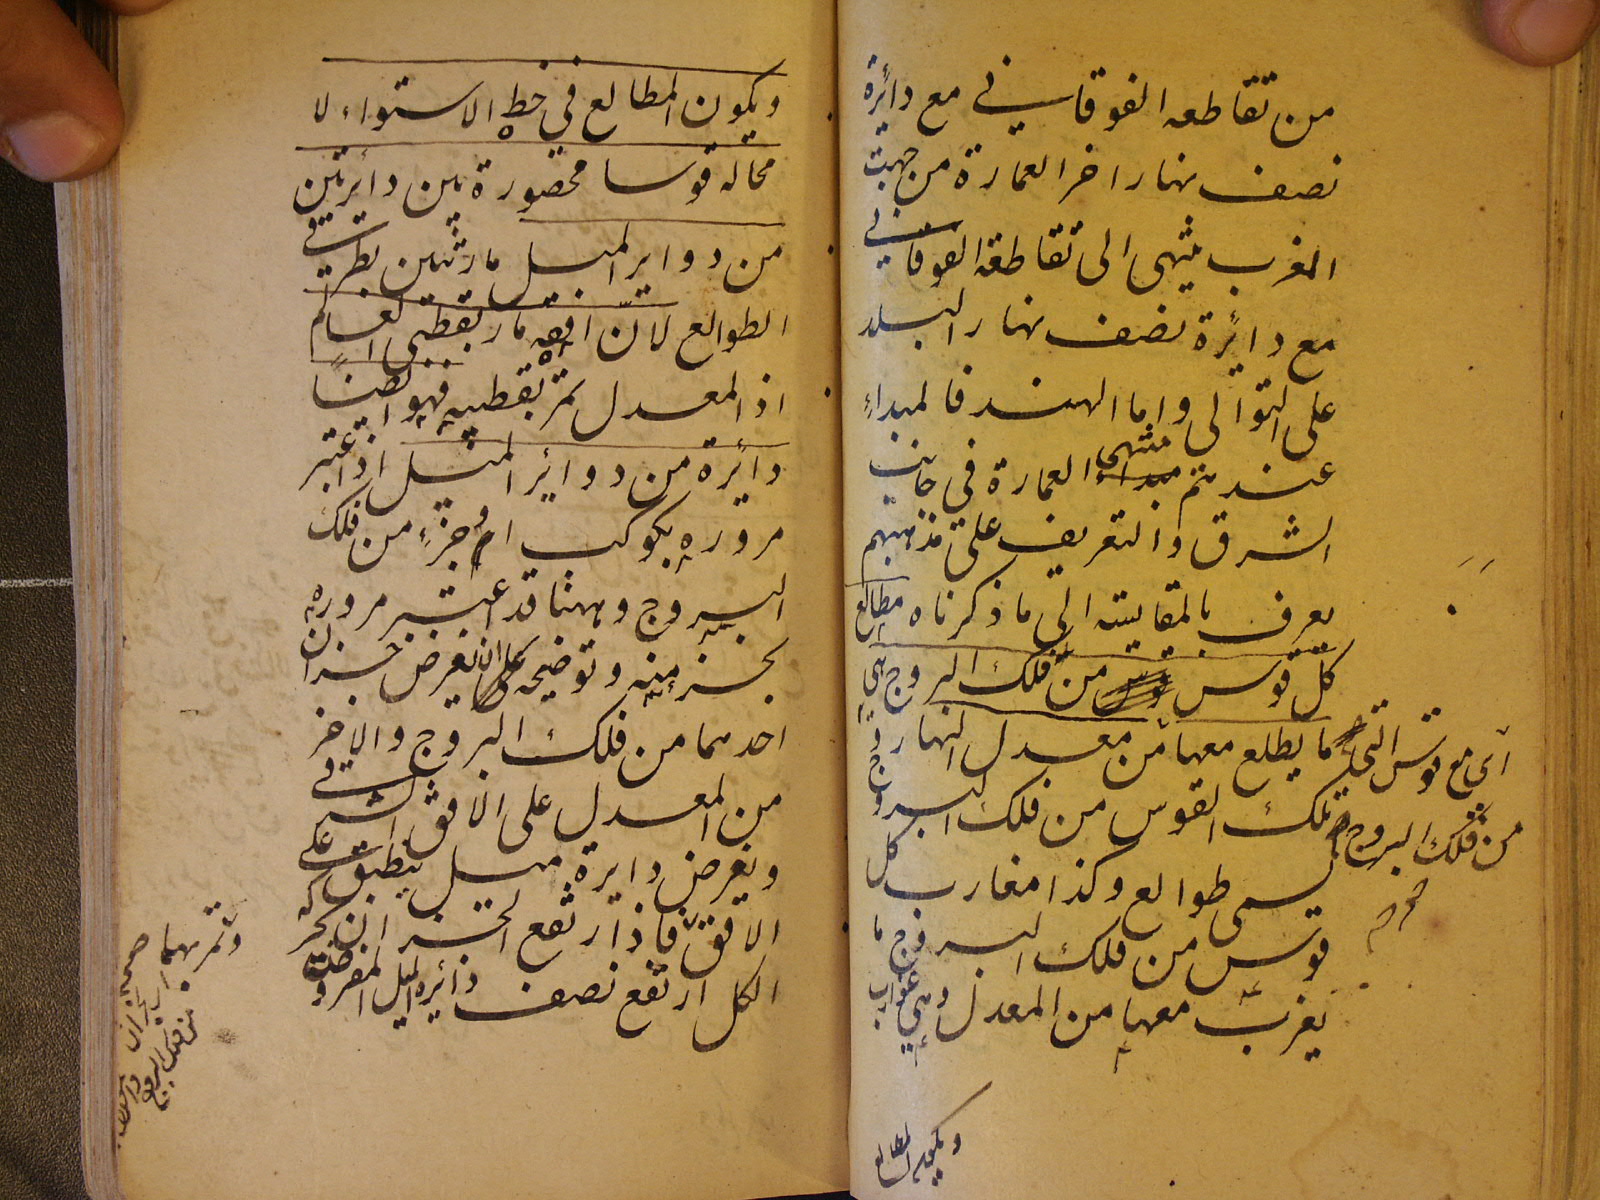 من تقاطعه الفوقاني مع دائرة
نصف نهار اخر العمارة من جهت
المغرب ينتهى الى تقاطعة الفوقاني
مع دائرة نصف نهار البلد
على التوالى واما الهند فالمبداء
عندهم منتهى العمارة في جانب
الشرق والتعريف على مذهبهم
يعرف بالمقايسته الى ما ذكرناه مطالع
كل قوس من فلك البروج هي
ما يطلع معها من معدل النهار و
تلك القوس من فلك البروج
تسمى طوالع وكذا مغارب كل
قوس من فلك البروج ما
يغرب معها من المعدل وهي غوارب
اى مع قوس التى
من فلك البروج
ويكون المطالع
ويكون المطالع في خط الاستواء لا
محاله قوسا محصورة بين دائرتين
من دواير الميل مارتين بطرفي
الطوالع لانّ افقه مار بقطبى العالم
اذ المعدل تمر بقطبيه فهو ايضاً
دائرة من دوائر الميل اذ اعتبر
مروره بكوكب او جزء من فلك
البروج وههنا قد اعتبر مروره
بجزء منه وتوضيحه ان نفرض جزان
احدهما من فلك البروج والاخر
من المعدل على الافق الشرقي
ونفرض دايرة ميل ينطبق على
الافق فاذا ارتفع الجزان بحركة
الكل ارتفع نصف دائرة الميل المفروضة
وتمر بهما
من فلك البروج